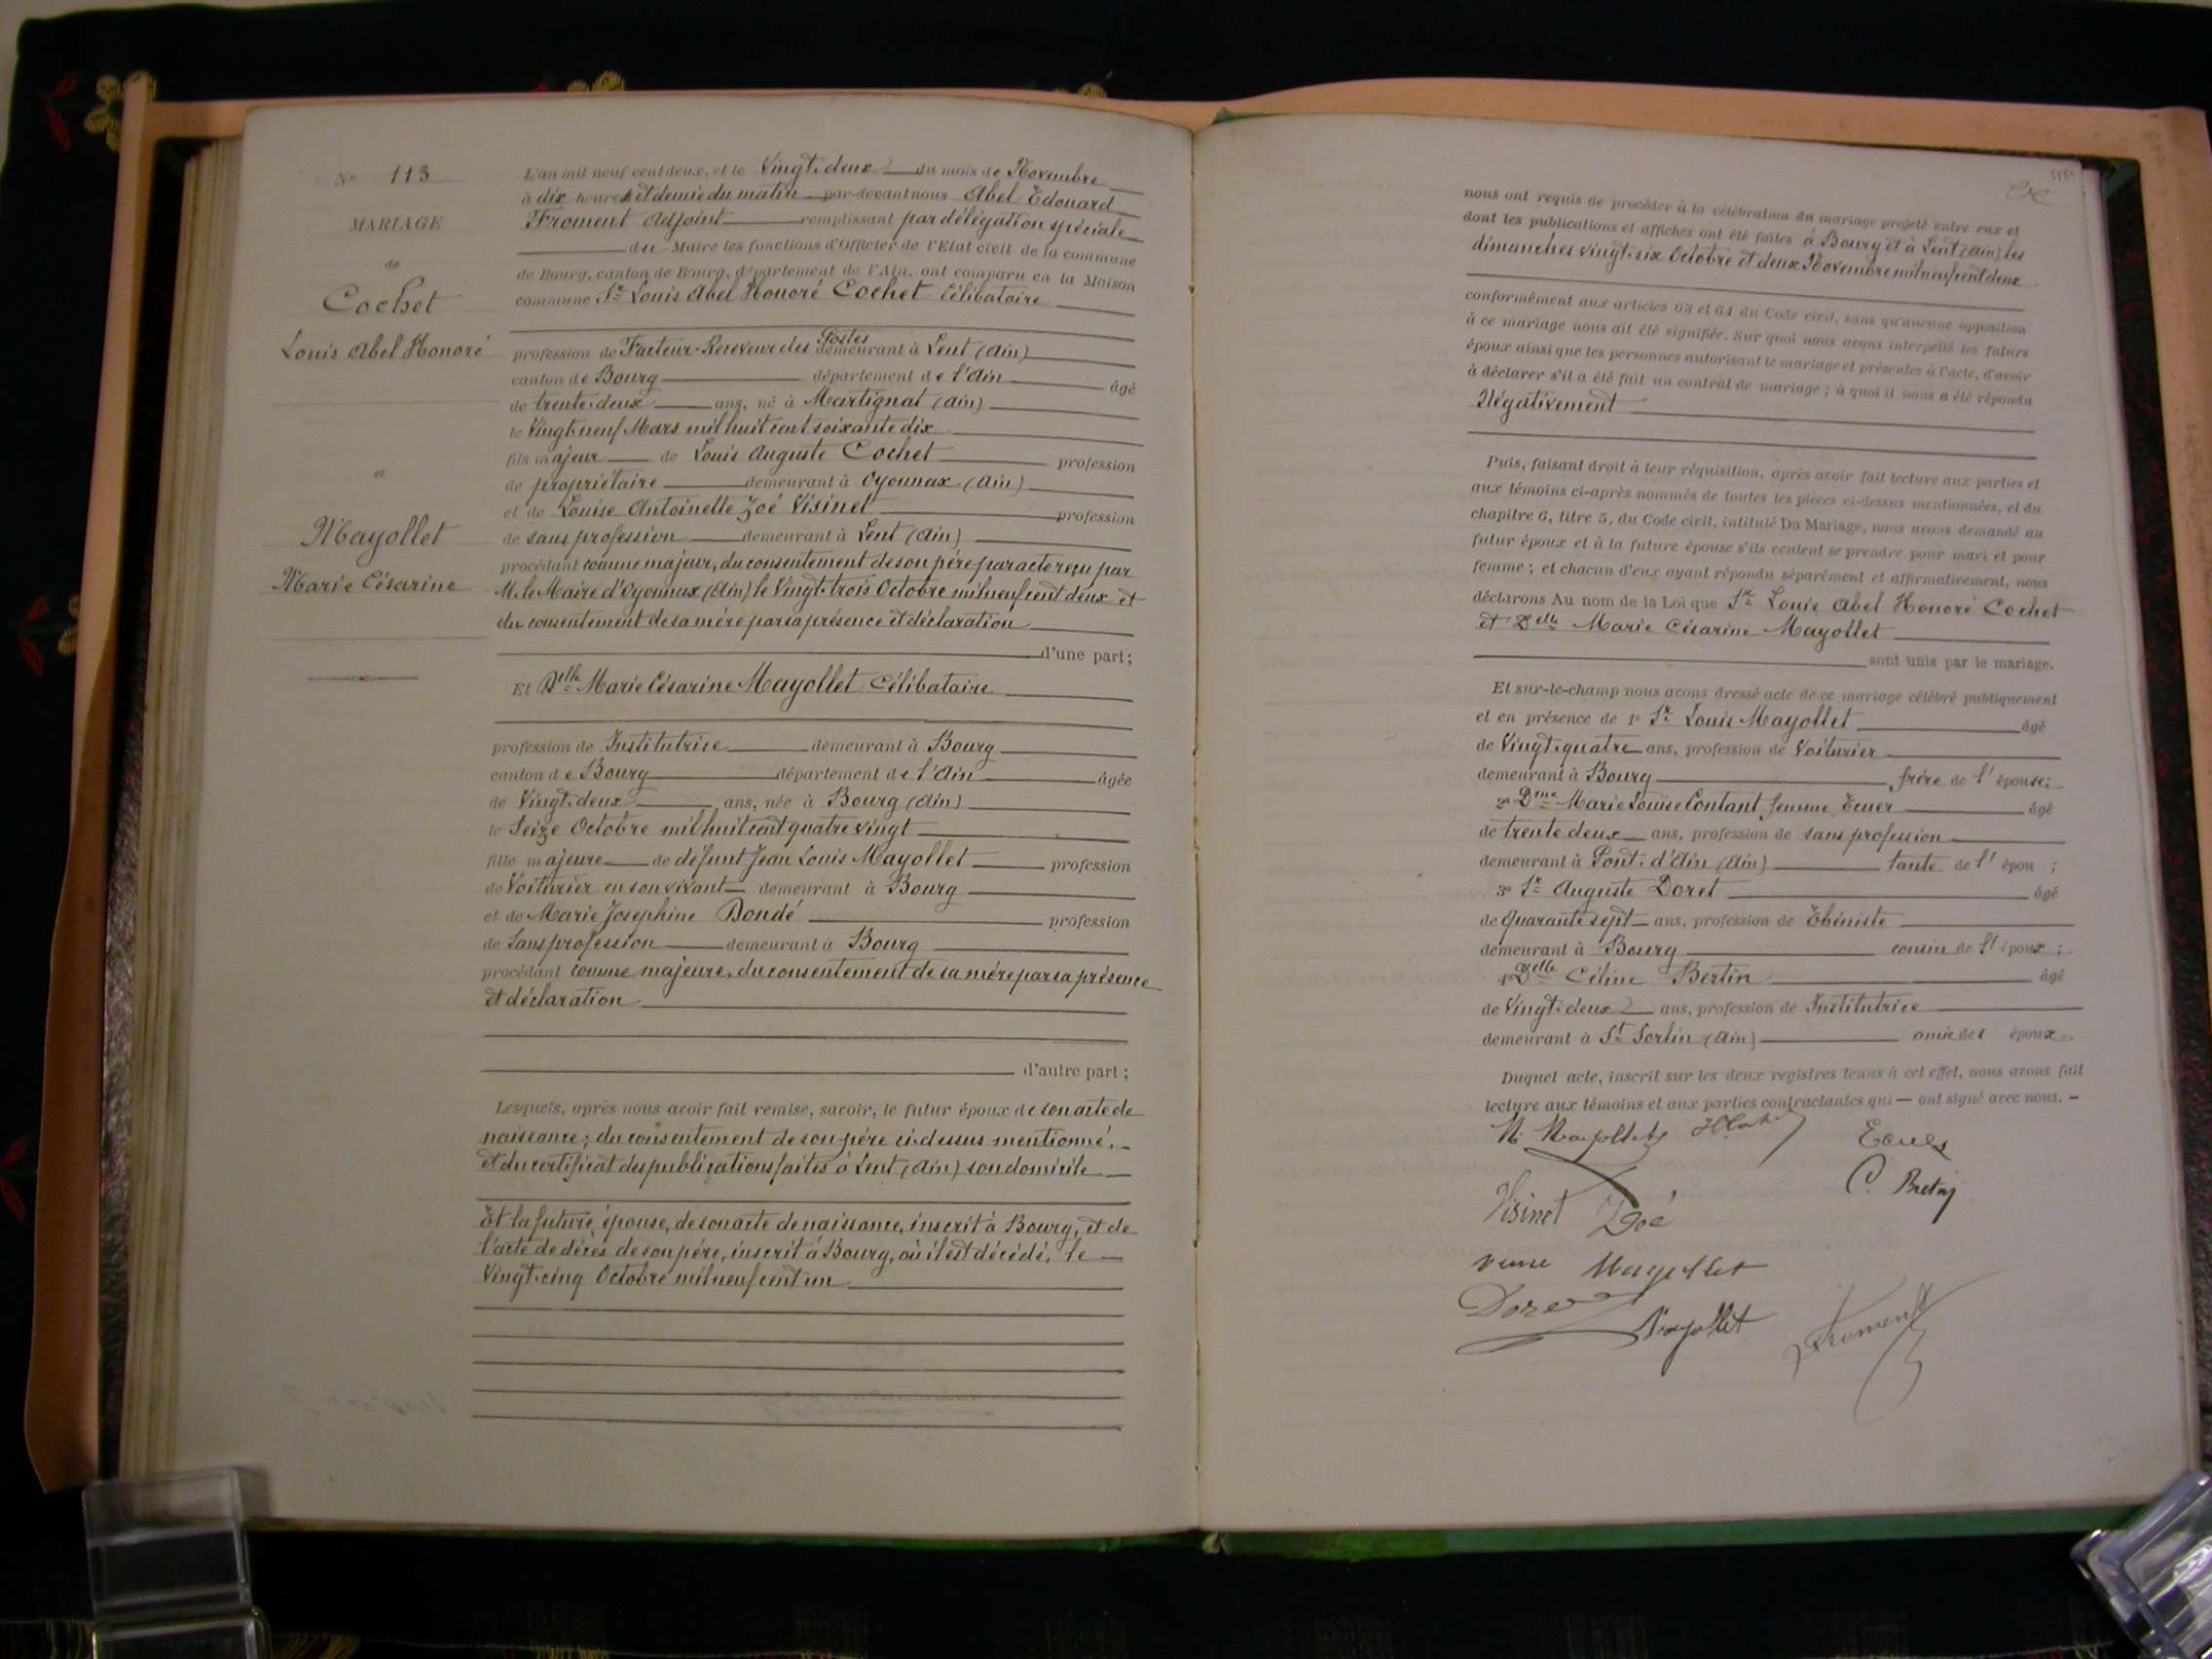 No 113
MARIAGE
de
Cochet
Louis Abel Honoré
et
Mayollet
Marie Césarine
L'an mil neuf cent deux, et le Vingt-deux du mois de Novembre
à dix heures et demie du matin par-devant nous Abel Edouard
Froment Adjoint remplissant par délégation spéciale
du Maire les fonctions d'Officier de l'Etat civil de la commune
de Bourg, canton de Bourg, département de l'Ain, ont comparu en la Maison
commune Sr Louis Abel Honoré Cochet Célibataire
profession de Facteur-Receveur des Postes demeurant à Lent (Ain)
canton de Bourg département de l'Ain âgé
de trente-deux ans, né à Martignat (Ain)
le Vingt-neuf Mars mil huit cent soixante dix
fils majeur de Louis Auguste Cochet profession
de propriétaire demeurant à Oyonnax (Ain)
et de Louise Antoinette Zoé Visinet profession
de sans profession demeurant à Lent (Ain)
procédant comme majeur, du consentement de son père par acte reçu par
M. le Maire d'Oyonnax (Ain) le Vingt-trois Octobre mil neuf cent deux et
du consentement de sa mère par sa présence et déclaration
d'une part;
Et Delle Marie Césarine Mayollet Célibataire
profession de Institutrice demeurant à Bourg
canton de Bourg département de l'Ain âgée
de Vingt-deux ans, née à Bourg (Ain)
le Seize Octobre mil huit cent quatre vingt
fille majeure de défunt Jean Louis Mayollet profession
de Voiturier en son vivant demeurant à Bourg
et de Marie Josephine Dondé profession
de Sans profession demeurant à Bourg
procédant comme majeure, du consentement de sa mère par sa présence
et déclaration
d'autre part;
Lesquels, après nous avoir fait remise, savoir, le futur époux de son acte de
naissance; du consentement de son père ci-dessus mentionné,
et du certificat des publications faites à Lent (Ain) son domicile
Et la future épouse, de son acte de naissance, inscrit à Bourg, et de
l'acte de décès de son père, inscrit à Bourg, où il est décédé, le
Vingt-cinq Octobre mil neuf cent un
115
nous ont requis de procéder à la célébration du mariage projeté entre eux et
dont les publications et affiches ont été faites à Bourg et à Lent (Ain) les
dimanches vingt-six Octobre et deux Novembre mil neuf cent deux
conformément aux articles 63 et 64 du Code civil, sans qu'aucune opposition
à ce mariage nous ait été signifiée. Sur quoi nous avons interpellé les futurs
époux ainsi que les personnes autorisant le mariage et présentes à l'acte, d'avoir
à déclarer s'il a été fait un contrat de mariage; à quoi il nous a été répondu
Négativement
Puis, faisant droit à leur réquisition, après avoir fait lecture aux parties et
aux témoins ci-après nommés de toutes les pièces ci-dessus mentionnées, et du
chapitre 6, titre 5, du Code civil, intitulé Du Mariage, nous avons demandé au
futur époux et à la future épouse s'ils veulent se prendre pour mari et pour
femme; et chacun d'eux ayant répondu séparément et affirmativement, nous
déclarons Au nom de la Loi que Sr Louis Abel Honoré Cochet
et Delle Marie Césarine Mayollet
sont unis par le mariage.
Et sur-le-champ nous avons dressé acte de ce mariage célébré publiquement
et en présence de 1º Sr Louis Mayollet âgé
de Vingt-quatre ans, profession de Voiturier
demeurant à Bourg frère de l'épouse;
2º Dme Marie Louise Contant femme Ecuer âgé
de trente deux ans, profession de sans profession
demeurant à Pont-d'Ain (Ain) tante de l'épou ;
3º Sr Auguste Doret âgé
de Quarante sept ans, profession de Ebéniste
demeurant à Bourg cousin de l'époux;
4º Delle Céline Bertin âgé
de Vingt-deux ans, profession de Institutrice
demeurant à St Sorlin (Ain) amie des époux.
Duquel acte, inscrit sur les deux registres tenus à cet effet, nous avons fait
lecture aux témoins et aux parties contractantes qui — ont signé avec nous.
M. Mayollet
Ecuer
Visinet Zoé
veuve Mayollet
Doret
Mayollet
Froment